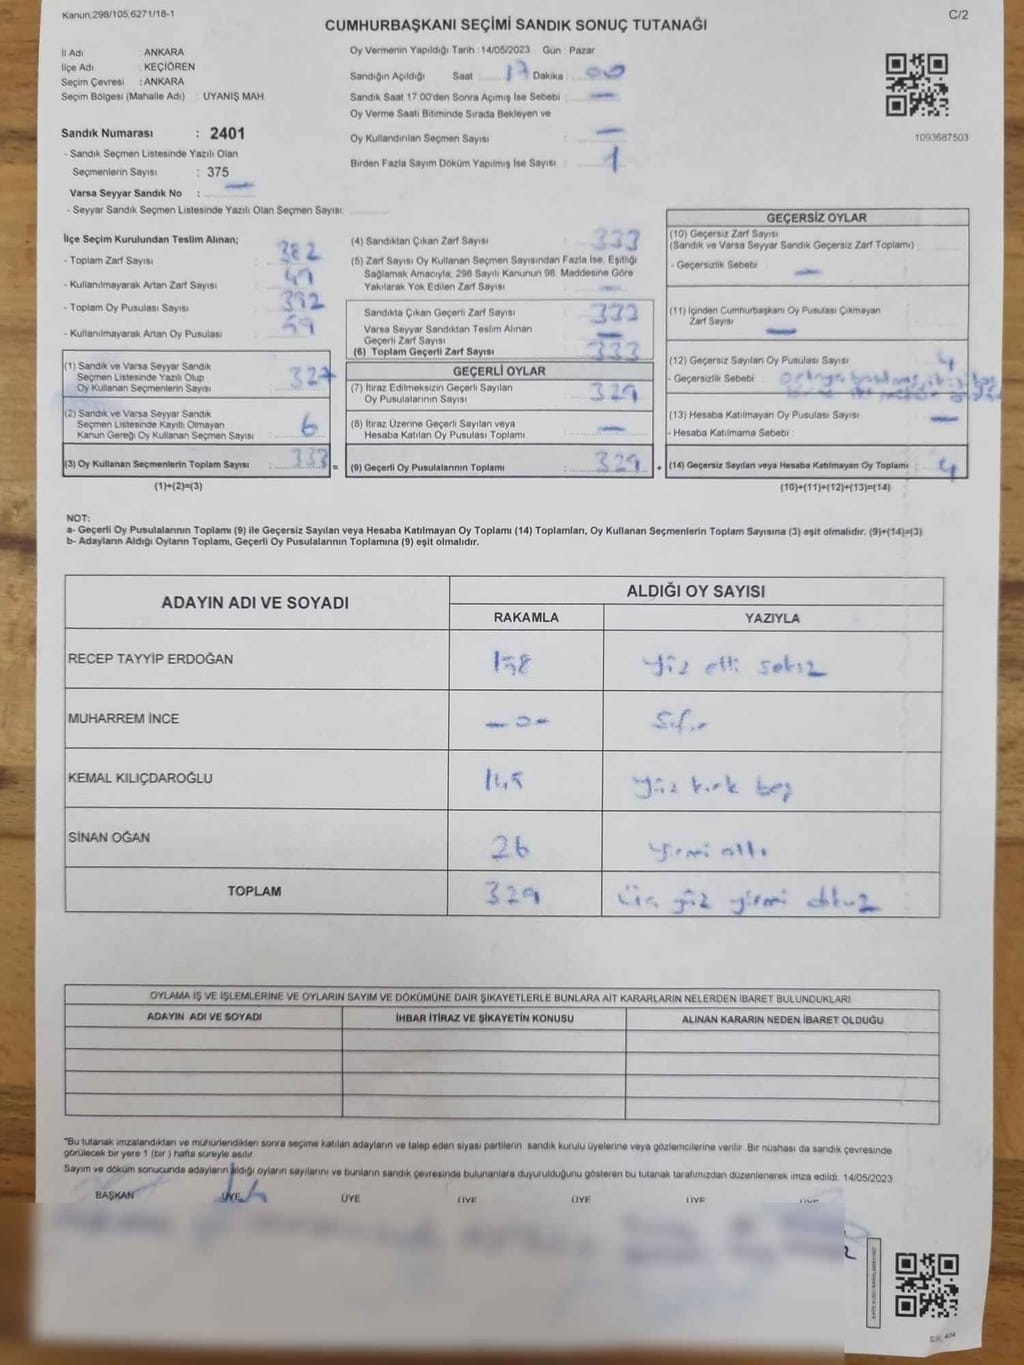 Kanun;298/105;6271/18-1
C/2
CUMHURBAŞKANI SEÇİMİ SANDIK SONUÇ TUTANAĞI
İl Adı : ANKARA
İlçe Adı : KEÇİÖREN
Seçim Çevresi : ANKARA
Seçim Bölgesi (Mahalle Adı) : UYANIŞ MAH.
Sandık Numarası : 2401
- Sandık Seçmen Listesinde Yazılı Olan
Seçmenlerin Sayısı : 375
Varsa Seyyar Sandık No : —
- Seyyar Sandık Seçmen Listesinde Yazılı Olan Seçmen Sayısı:
Oy Vermenin Yapıldığı Tarih :14/05/2023 Gün : Pazar
Sandığın Açıldığı Saat 17 Dakika : 00
Sandık Saat 17.00'den Sonra Açımış İse Sebebi : —
Oy Verme Saati Bitiminde Sırada Bekleyen ve
Oy Kullandırılan Seçmen Sayısı : —
Birden Fazla Sayım Döküm Yapılmış İse Sayısı : 1
1093687503
İlçe Seçim Kurulundan Teslim Alınan;
- Toplam Zarf Sayısı : 382
- Kullanılmayarak Artan Zarf Sayısı : 49
- Toplam Oy Pusulası Sayısı : 392
- Kullanılmayarak Artan Oy Pusulası : 59
(1) Sandık ve Varsa Seyyar Sandık
Seçmen Listesinde Yazılı Olup
Oy Kullanan Seçmenlerin Sayısı : 327
(2) Sandık ve Varsa Seyyar Sandık
Seçmen Listesinde Kayıtlı Olmayan
Kanun Gereği Oy Kullanan Seçmen Sayısı : 6
(3) Oy Kullanan Seçmenlerin Toplam Sayısı : 333 =
(1)+(2)=(3)
(4) Sandıktan Çıkan Zarf Sayısı : 333
(5) Zarf Sayısı Oy Kullanan Seçmen Sayısından Fazla İse, Eşitliği
Sağlamak Amacıyla, 298 Sayılı Kanunun 98. Maddesine Göre
Yakılarak Yok Edilen Zarf Sayısı : —
Sandıkta Çıkan Geçerli Zarf Sayısı : 333
Varsa Seyyar Sandıktan Teslim Alınan
Geçerli Zarf Sayısı : —
(6) Toplam Geçerli Zarf Sayısı : 333
GEÇERLİ OYLAR
(7) İtiraz Edilmeksizin Geçerli Sayılan
Oy Pusulalarının Sayısı : 329
(8) İtiraz Üzerine Geçerli Sayılan veya
Hesaba Katılan Oy Pusulası Toplamı : —
(9) Geçerli Oy Pusulalarının Toplamı : 329 +
GEÇERSİZ OYLAR
(10) Geçersiz Zarf Sayısı
(Sandık ve Varsa Seyyar Sandık Geçersiz Zarf Toplamı)
- Geçersizlik Sebebi : —
(11) İçinden Cumhurbaşkanı Oy Pusulası Çıkmayan
Zarf Sayısı : —
(12) Geçersiz Sayılan Oy Pusulası Sayısı : 4
- Geçersizlik Sebebi :
(13) Hesaba Katılmayan Oy Pusulası Sayısı : —
- Hesaba Katılmama Sebebi :
(14) Geçersiz Sayılan veya Hesaba Katılmayan Oy Toplamı : 4
(10)+(11)+(12)+(13)=(14)
NOT:
a- Geçerli Oy Pusulalarının Toplamı (9) ile Geçersiz Sayılan veya Hesaba Katılmayan Oy Toplamı (14) Toplamları, Oy Kullanan Seçmenlerin Toplam Sayısına (3) eşit olmalıdır. (9)+(14)=(3)
b- Adayların Aldığı Oyların Toplamı, Geçerli Oy Pusulalarının Toplamına (9) eşit olmalıdır.
ADAYIN ADI VE SOYADI ALDIĞI OY SAYISI
RAKAMLA YAZIYLA
RECEP TAYYİP ERDOĞAN 158 Yüz elli sekiz
MUHARREM İNCE -0- Sıfır
KEMAL KILIÇDAROĞLU 145 Yüz kırk beş
SİNAN OĞAN 26 Yirmi altı
TOPLAM 329 Üç yüz yirmi dokuz
OYLAMA İŞ VE İŞLEMLERİNE VE OYLARIN SAYIM VE DÖKÜMÜNE DAİR ŞİKAYETLERLE BUNLARA AİT KARARLARIN NELERDEN İBARET BULUNDUKLARI
ADAYIN ADI VE SOYADI İHBAR İTİRAZ VE ŞİKAYETİN KONUSU ALINAN KARARIN NEDEN İBARET OLDUĞU
*Bu tutanak imzalandıktan ve mühürlendikten sonra seçime katılan adayların ve talep eden siyasi partilerin sandık kurulu üyelerine veya gözlemcilerine verilir. Bir nüshası da sandık çevresinde
görülecek bir yere 1 (bir ) hafta süreyle asılır.
Sayım ve döküm sonucunda adayların aldığı oyların sayılarını ve bunların sandık çevresinde bulunanlara duyurulduğunu gösteren bu tutanak tarafımızdan düzenlenerek imza edildi. 14/05/2023
BAŞKAN ÜYE ÜYE ÜYE ÜYE ÜYE